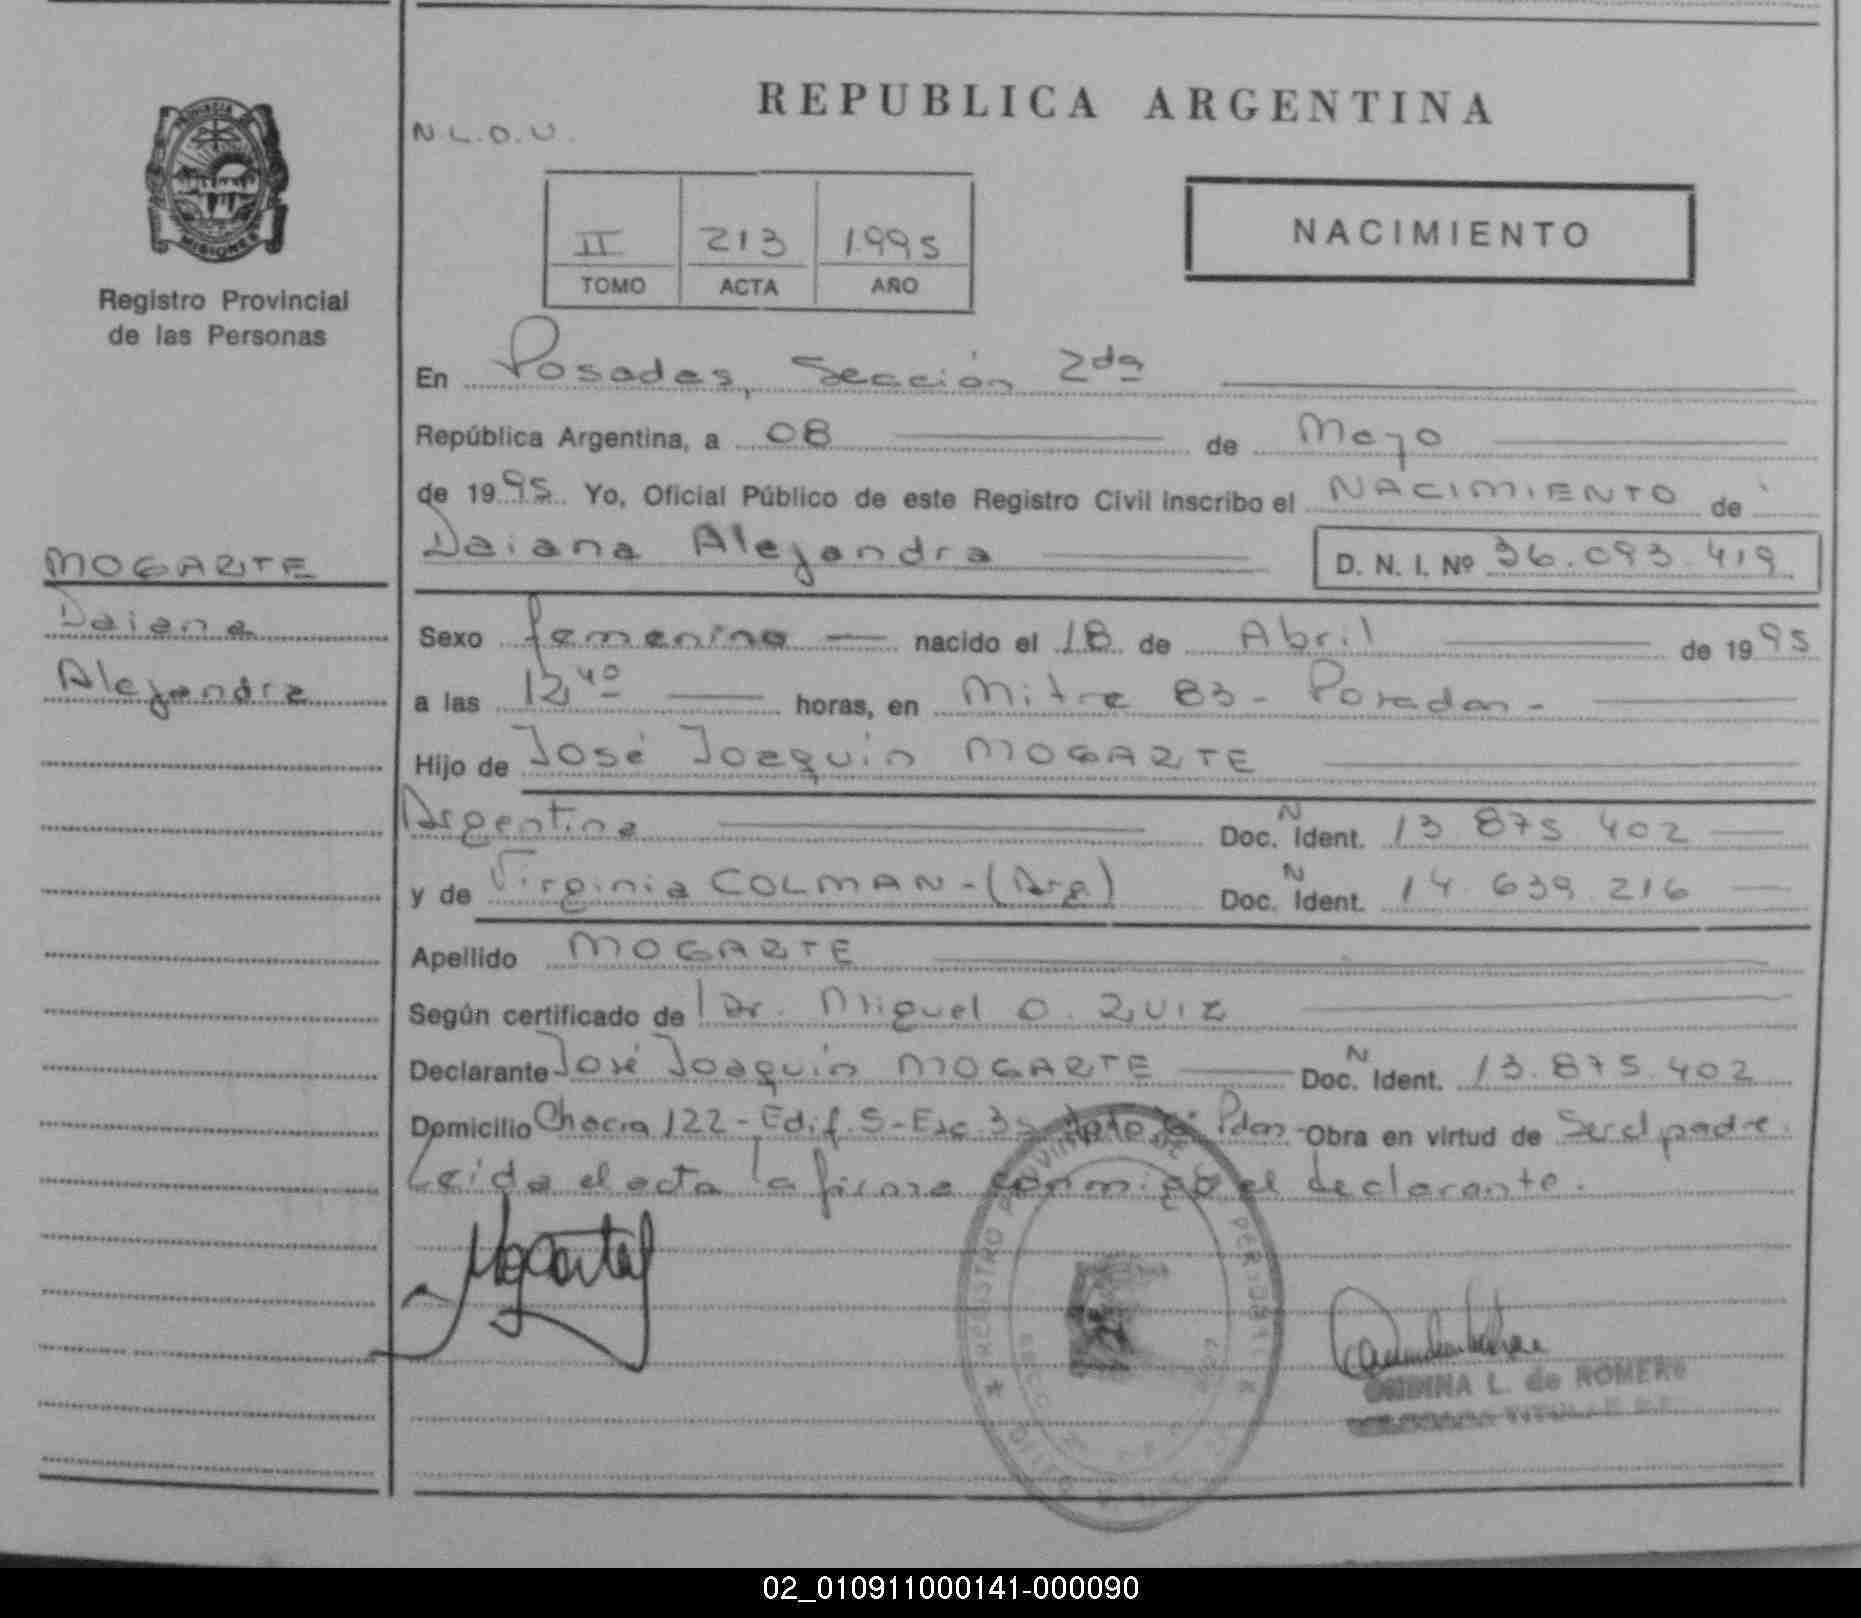 REPUBLICA ARGENTINA
N L.O.U.
PROVINCIA DE
MISIONES
Registro Provincial
de las Personas
II 213 1995
TOMO ACTA AÑO
NACIMIENTO
En Posadas, Sección 2da
República Argentina, a 08 de Mayo
de 1995. Yo, Oficial Público de este Registro Civil inscribo el NACIMIENTO de
Daiana Alejandra D. N. I. Nº 36.093.419
MOGARTE
Daiana
Alejandra
Sexo femenino nacido el 18 de Abril de 1995
a las 12,40 horas, en Mitre 83 - Posadas -
Hijo de José Joaquín MOGARTE
Argentina Doc. N Ident. 13 875 402
y de Virginia COLMAN - (Arg) Doc. N Ident. 14.639.216
Apellido MOGARTE
Según certificado de Dr. Miguel O. RUIZ
Declarante José Joaquín MOGARTE Doc. N Ident. 13.875.402
Domicilio Chacra 122 - Edif. 5 - Esc 3 Pdas - Obra en virtud de Ser el padre.
Leída el acta la firma conmigo el declarante.
Mogarte
REGISTRO PROVINCIAL DE LAS PERSONAS
L. de ROMERO
02_010911000141-000090